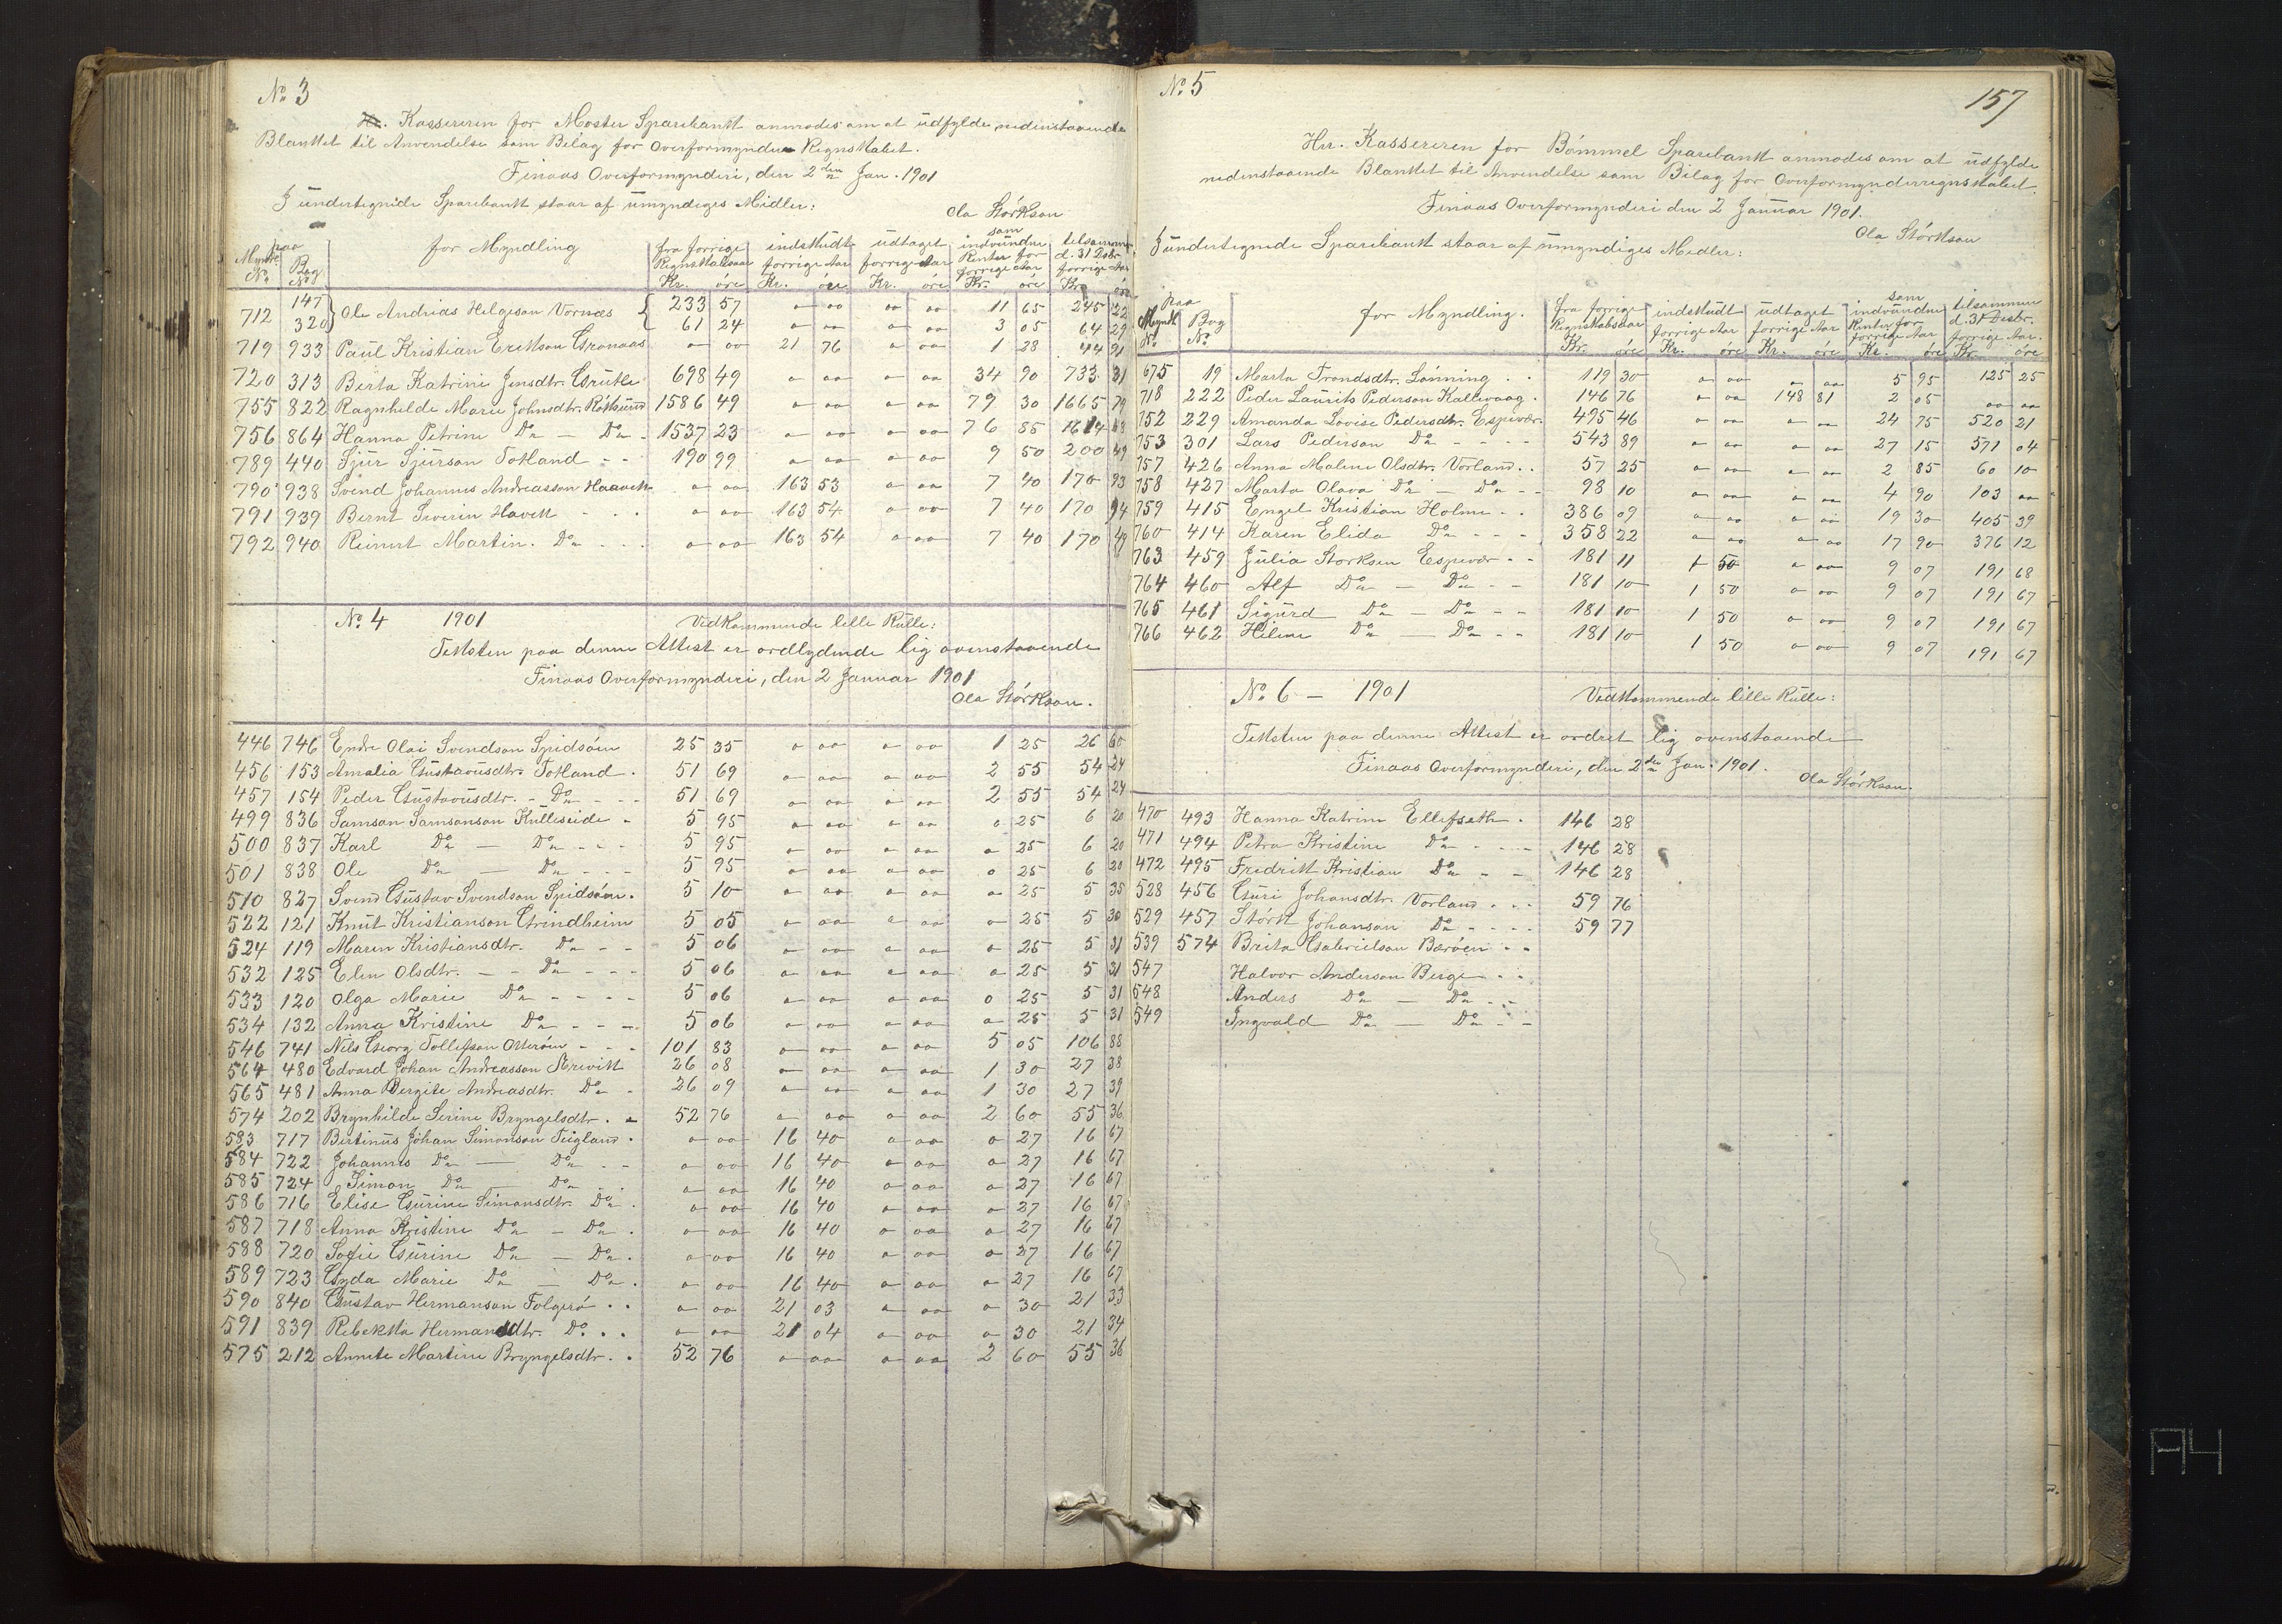 No 3
Hr. Kassereren for Moster Sparebank anmodes om at udfylde nedenstaaende
Blanket til Anvendelse som Bilag for Overformynder Regnskabet.
Finaas Overformynderi, den 2den Jan. 1901
Ola Störkson
I undertegnede Sparebank staar af umyndiges Midler:
paa
Myndl. No Bog No for Myndling fra forrige Regnskabsaar Kr. öre indskudt forrige Aar Kr. öre udtaget forrige Aar Kr. öre som indvundne Renter for forrige Aar Kr. öre tilsammen d. 31 Desbr. forrige Aar Kr. öre
712 147 Ole Andrias Helgeson Vornæs 233 57 " " " " 11 65 245 22
320 61 24 " " " " 3 05 64 29
719 933 Paul Kristian Erikson Grönaas " " 21 76 " " 1 28 44 91
720 313 Berta Katrine Jensdtr. Grutle 698 49 " " " " 34 90 733 31
755 822 Ragnhilde Marie Johnsdtr. 1586 49 " " " " 79 30 1665 79
756 864 Hanna Petrine Do — Do 1537 23 " " " " 76 85 1614 08
789 440 Sjur Sjurson Totland 190 99 " " " " 9 50 200 49
790 938 Svend Johannes Andreasson Haavik " " 163 53 " " 7 40 170 93
791 939 Bernt Severin Havik " " 163 54 " " 7 40 170 94
792 940 Reinert Martin Do " " 163 54 " " 7 40 170 49
No 4 1901 Vedkommende lille Rulle:
Teksten paa denne Attest er ordlydende lig ovenstaaende
Finaas Overformynderi, den 2 Januar 1901
Ola Störkson.
446 746 Endre Olai Svendson Spidsöen 25 35 " " " " 1 25 26 60
456 153 Amalia Gustavusdtr. Totland 51 69 " " " " 2 55 54 24
457 154 Peder Gustavusdtr. Do 51 69 " " " " 2 55 54 24
499 836 Samson Samsonson Kulleseide 5 95 " " " " " 25 6 20
500 837 Karl Do — Do 5 95 " " " " " 25 6 20
501 838 Ole Do — Do 5 95 " " " " " 25 6 20
510 827 Svend Gustav Svendson Spidsöen 5 10 " " " " " 25 5 35
522 121 Knut Kristianson Grindheim 5 05 " " " " " 25 5 30
524 119 Maren Kristiansdtr. Do 5 06 " " " " " 25 5 31
532 125 Elen Olsdtr. — Do 5 06 " " " " " 25 5 31
533 120 Olga Marie Do 5 06 " " " " " 25 5 31
534 132 Anna Kristine Do 5 06 " " " " " 25 5 31
546 741 Nils Georg Tollefson Otteröen 101 83 " " " " 5 05 106 88
564 480 Edvard Johan Andreasson 26 08 " " " " 1 30 27 38
565 481 Anna Bergite Andreasdtr. Do 26 09 " " " " 1 30 27 39
574 202 Brynhilde Serine Bryngelsdtr. 52 76 " " " " 2 60 55 36
583 717 Bertinus Johan Simonson Tegland " " 16 40 " " " 27 16 67
584 722 Johannes Do — Do " " 16 40 " " " 27 16 67
585 724 Simon Do — Do " " 16 40 " " " 27 16 67
586 716 Elise Gurine Simonsdtr. Do " " 16 40 " " " 27 16 67
587 718 Anna Kristine Do — Do " " 16 40 " " " 27 16 67
588 720 Sofie Gurine Do — Do " " 16 40 " " " 27 16 67
589 723 Gyda Marie Do — Do " " 16 40 " " " 27 16 67
590 840 Gustav Hermanson Folgerö " " 21 03 " " " 30 21 33
591 839 Rebekka Hermansdtr. Do " " 21 04 " " " 30 21 34
575 212 Annete Martine Bryngelsdtr. 52 76 " " " " 2 60 55 36
No 5
157
Hrr. Kassereren for Bömmel Sparebank anmodes om at udfylde
nedenstaaende Blanket til Anvendelse som Bilag for Overformynderregnskabet.
Finaas Overformynderi den 2 Januar 1901.
Ola Störkson
I undertegnede Sparebank staar af umyndiges Midler:
paa
Myndl. No Bog No for Myndling. fra forrige Regnskabsaar Kr. öre indskudt forrige Aar Kr. öre udtaget forrige Aar Kr. öre som indvundne Renter for forrige Aar Kr. öre tilsammen d. 31 Desbr. forrige Aar. Kr. öre
675 19 Marta Trondsdtr. Lönning 119 30 " " " " 5 95 125 25
718 222 Peder Laurits Pederson Kallevaag 146 76 " " 148 81 2 05 " "
752 229 Amanda Lovise Pedersdtr. Espevær 495 46 " " " " 24 75 520 21
753 301 Lars Pederson Do 543 89 " " " " 27 15 571 04
757 426 Anna Malene Olsdtr. Vorland 57 25 " " " " 2 85 60 10
758 427 Marta Olava Do — Do 98 10 " " " " 4 90 103 "
759 415 Engel Kristian Holme 386 09 " " " " 19 30 405 39
760 414 Karen Elida Do 358 22 " " " " 17 90 376 12
763 459 Julia Storksen Espevær 181 11 1 50 " " 9 07 191 68
764 460 Alf Do — Do 181 10 1 50 " " 9 07 191 67
765 461 Sigurd Do — Do 181 10 1 50 " " 9 07 191 67
766 462 Helene Do — Do 181 10 1 50 " " 9 07 191 67
No 6 – 1901 Vedkommende lille Rulle:
Teksten paa denne Attest er ordret lig ovenstaaende
Finaas Overformynderi, den 2den Jan. 1901.
Ola Störkson.
470 493 Hanna Katrine Ellefseth 146 28
471 494 Petra Kristine Do 146 28
472 495 Fredrik Kristian Do 146 28
528 456 Guri Johansdtr. Vorland 59 76
529 457 Störk Johanson Do 59 77
539 574 Brita Gabrielson Bæröen
547 Halvor Anderson Berge
548 Anders Do — Do
549 Ingvald Do — Do
A4